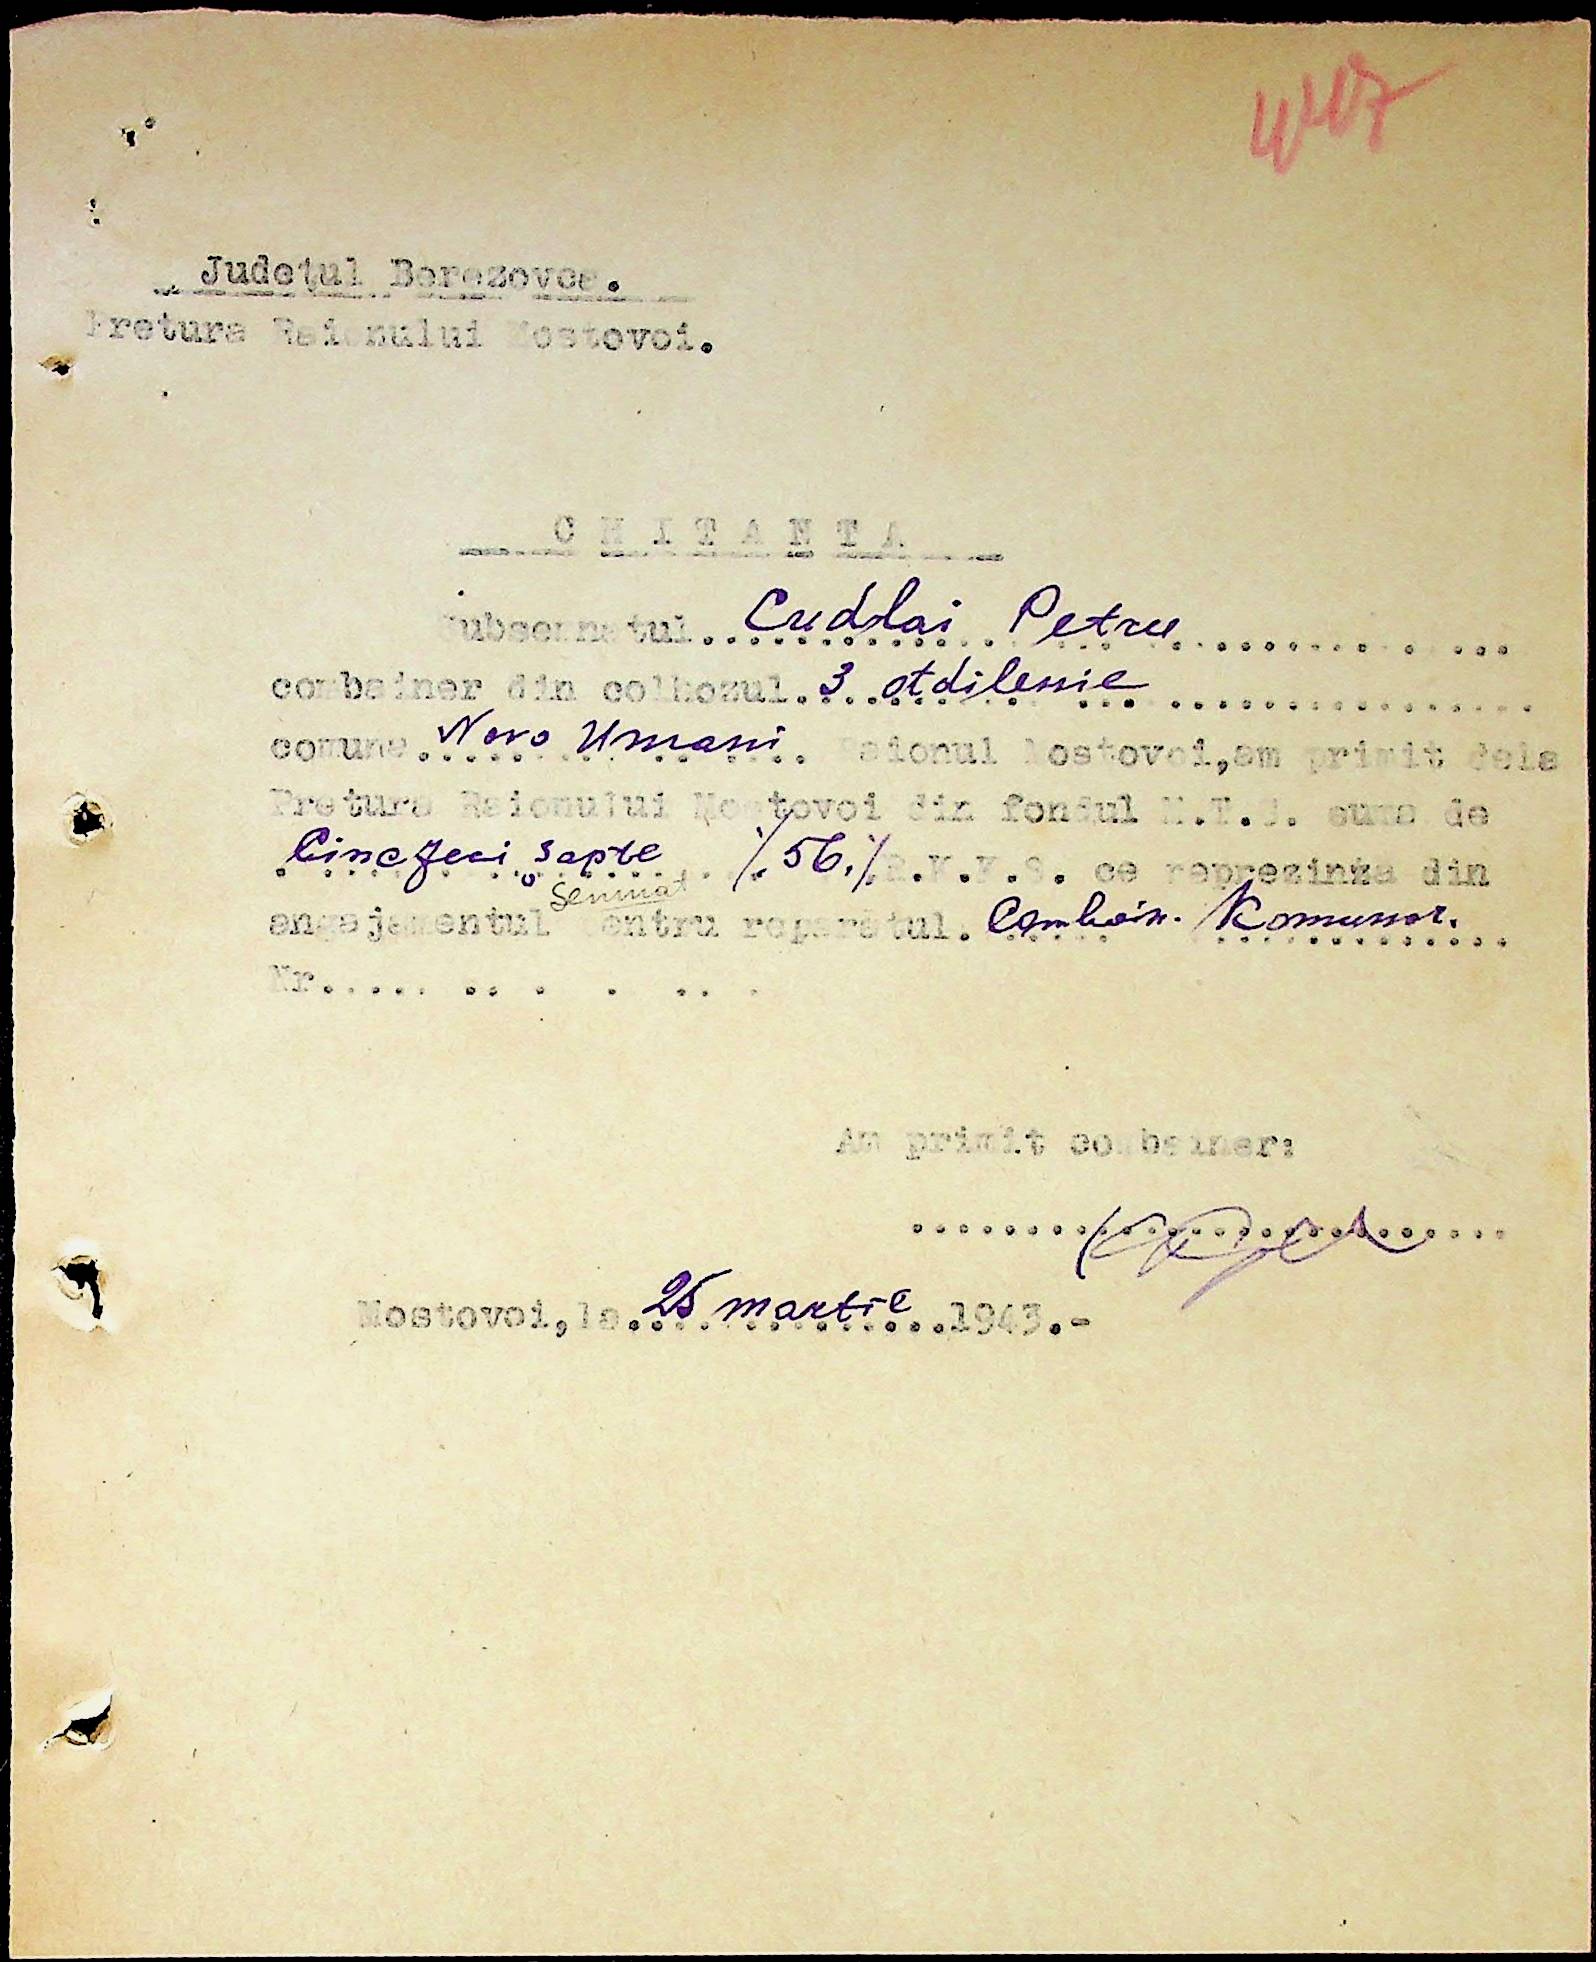 Judeţul Berezovca.
Pretura Raionului Mostovoi.
C H I T A N T A
Subsemnatul.. Cudlai Petru
combainer din colhozul. 3 otdilenie
comuna Novo Umani. Raionul Mostovoi,am primit dela
Pretura Raionului Mostovoi din fondul suma de
Cinczeci şapte ./56./. ce reprezinta din
Semnat
angajamentul pentru reparatul. Combain. Komunar.
Nr.....
Am primit combainer:
Mostovoi,la. 25 martie 1943.-